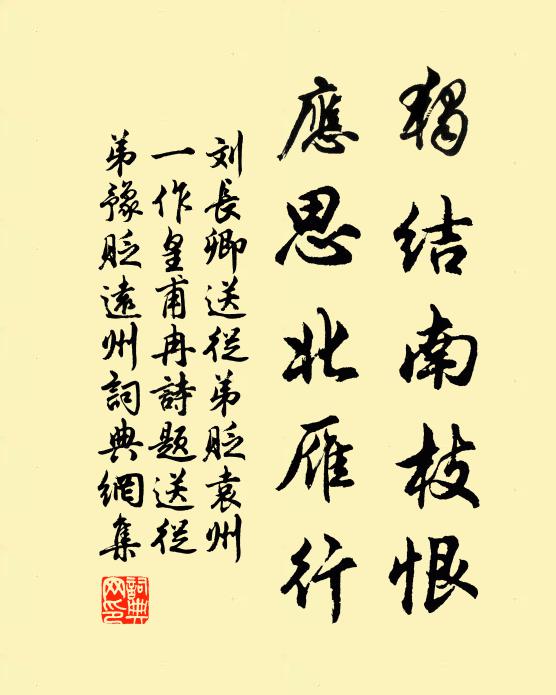 独结南枝恨
應思北雁行
刘長卿送從弟貶袁州
一作皇甫冉詩題送從
弟豫貶遠州詞典網集
詞典網印